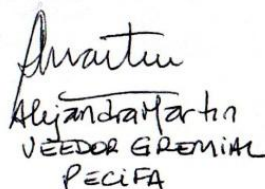 Alejandra Martin
VEEDOR GREMIAL
PECIFA